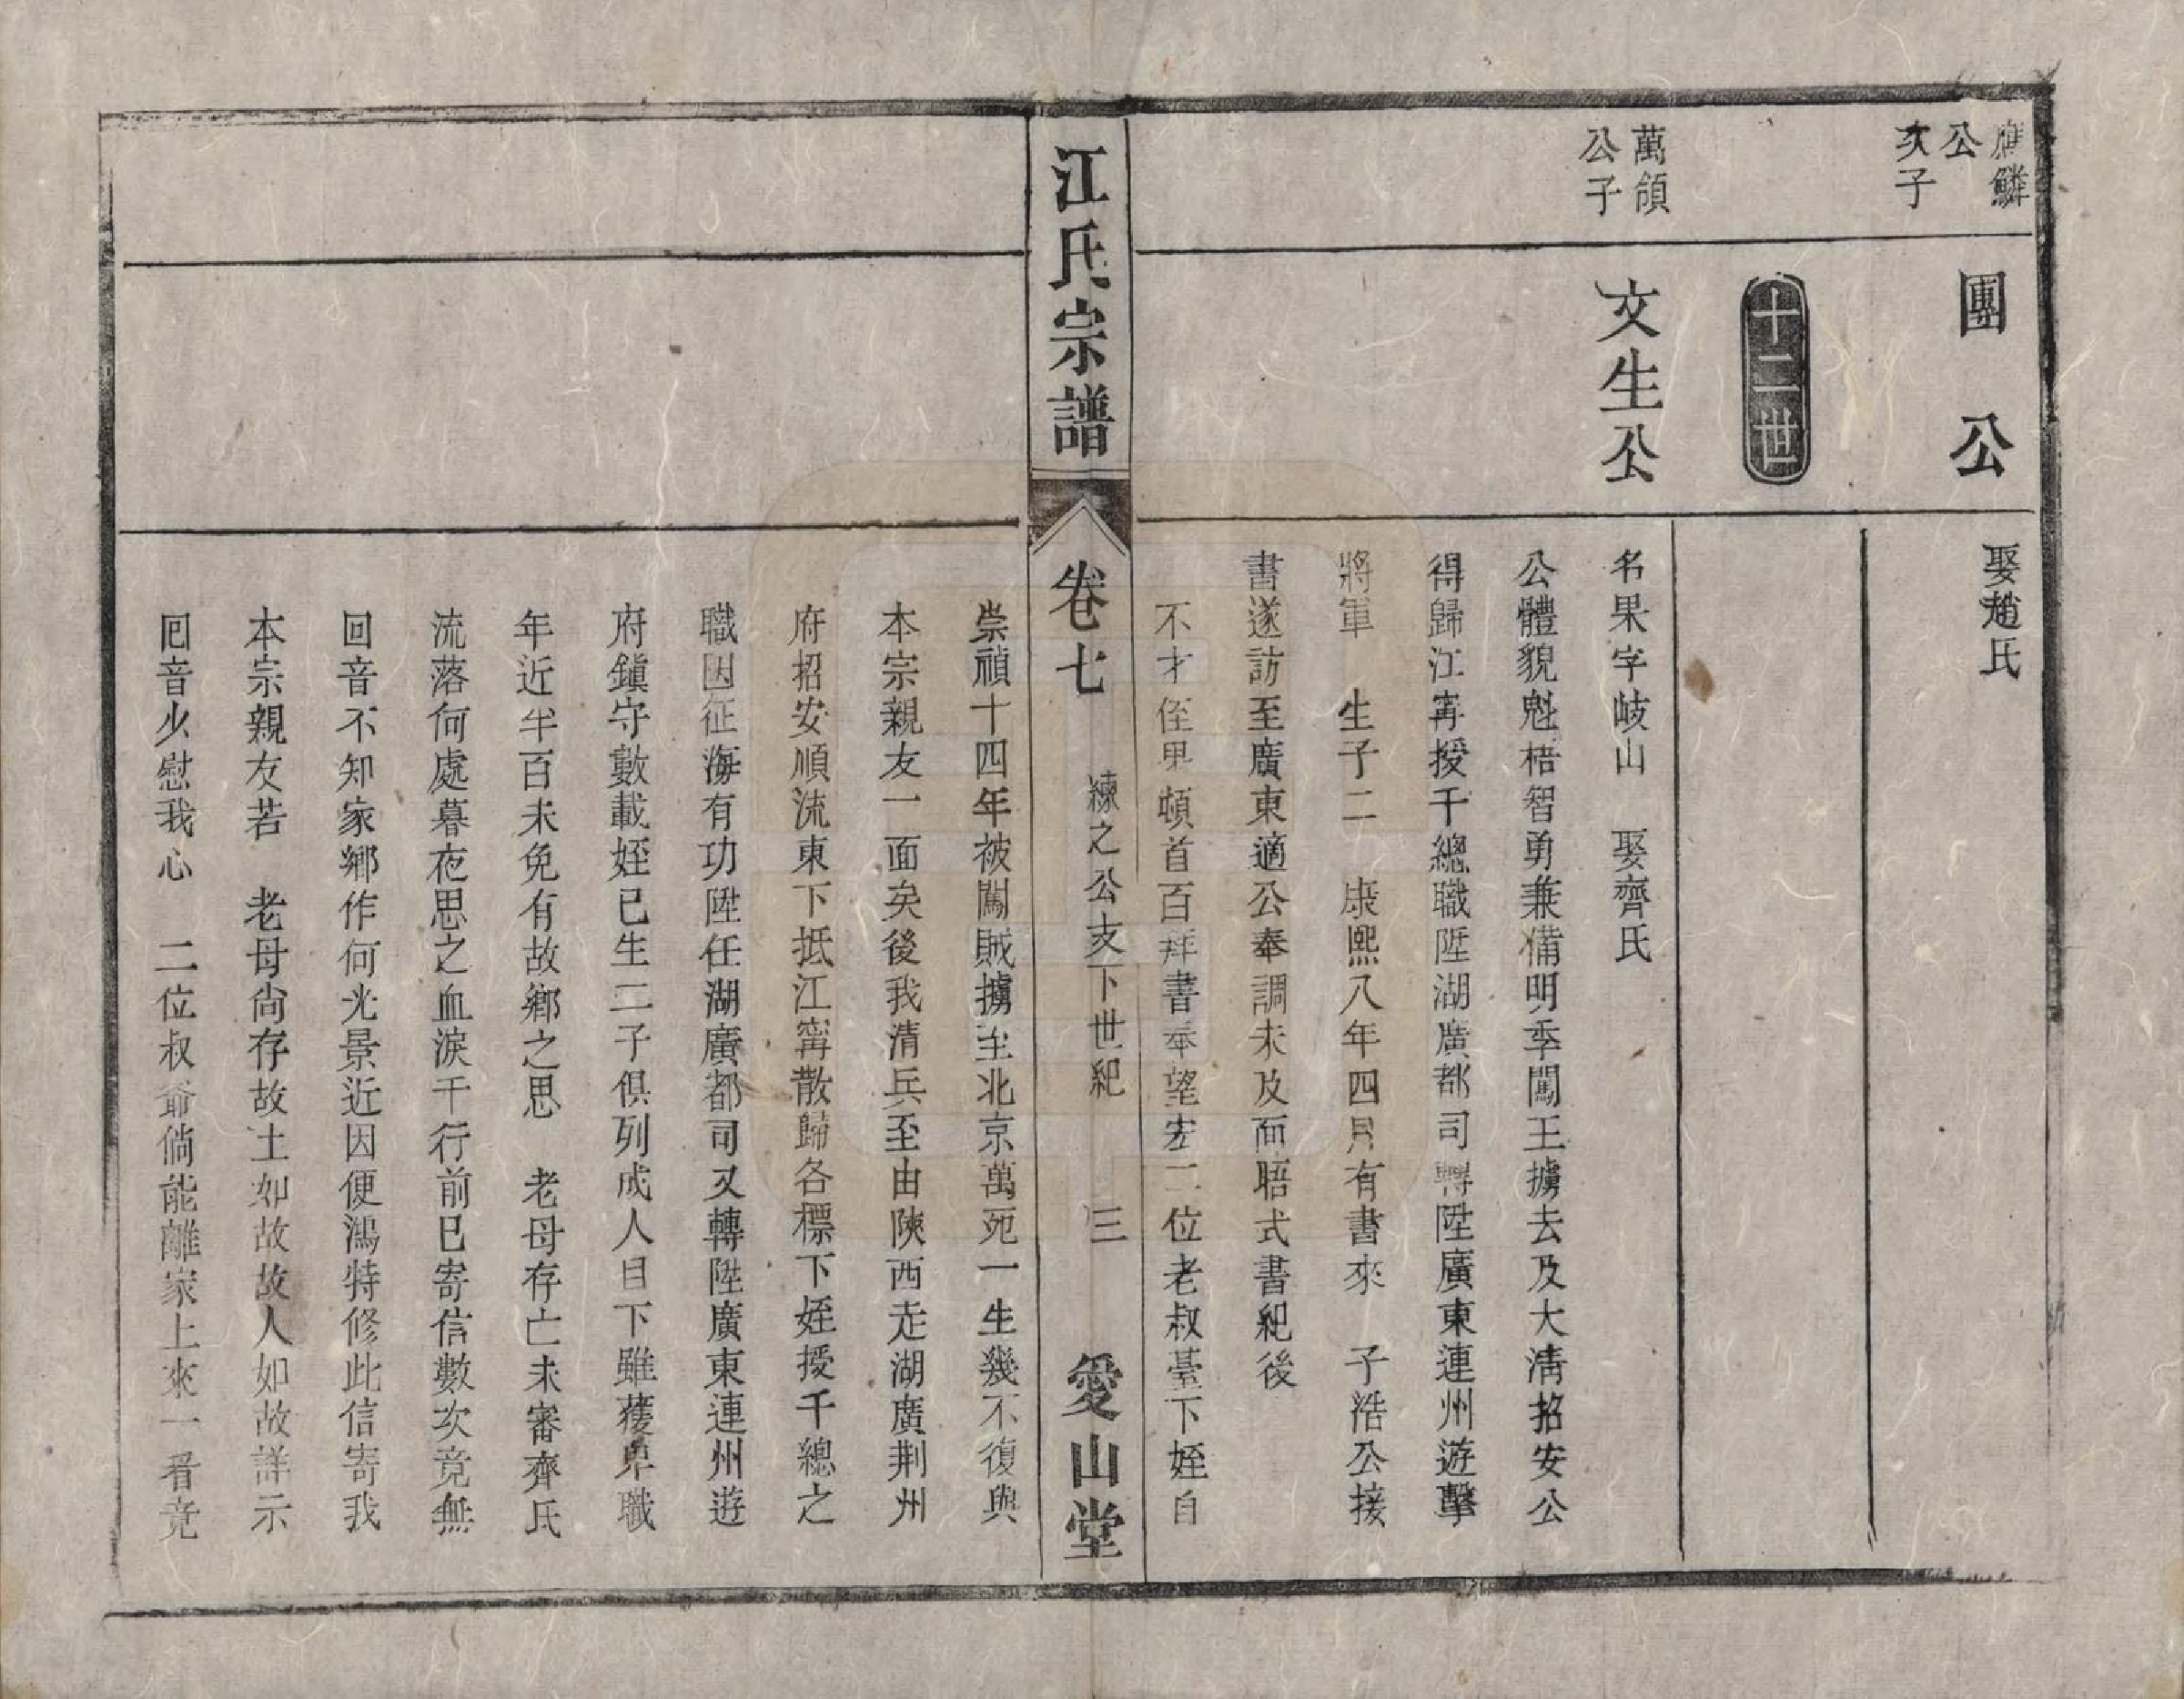 應鱗
公
次子
團公
娶趙氏
十二世
萬頒
公子
文生公
名果字岐山　娶齊氏
公體貌魁梧智勇兼備明季闖王擄去及大清招安公
得歸江寗授千總職陞湖廣都司轉陞廣東連州遊擊
將軍　生子二　康熙八年四月有書來　子浩公接
書遂訪至廣東適公奉調未及面晤式書紀後
不才侄果頓首百拜書奉望宏二位老叔臺下姪自
江氏宗譜
卷七
練之公支下世紀
三
愛山堂
崇禎十四年被闖賊擄至北京萬死一生幾不復與
本宗親友一面矣後我清兵至由陝西走湖廣荆州
府招安順流東下抵江寗散歸各標下姪授千總之
職因征海有功陞任湖廣都司又轉陞廣東連州遊
府鎭守數載姪已生二子俱列成人目下雖蒦卑職
年近半百未免有故鄉之思　老母存亡未審齊氏
流落何處暮夜思之血淚千行前已寄信數次竟無
回音不知家鄉作何光景近因便鴻特修此信寄我
本宗親友若　老母尙存故土如故故人如故詳示
囘音少慰我心　二位叔爺倘能離家上來一看竟